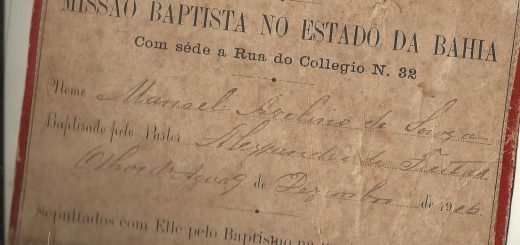 MISSÃO BAPTISTA NO ESTADO DA BAHIA
Com séde a Rua do Collegio N. 32
Nome Manoel Avelino de Souza
Baptisado pelo Pastor Alexandre de Freitas
de Dezembro de 19
Sepultados com Elle pelo Baptismo